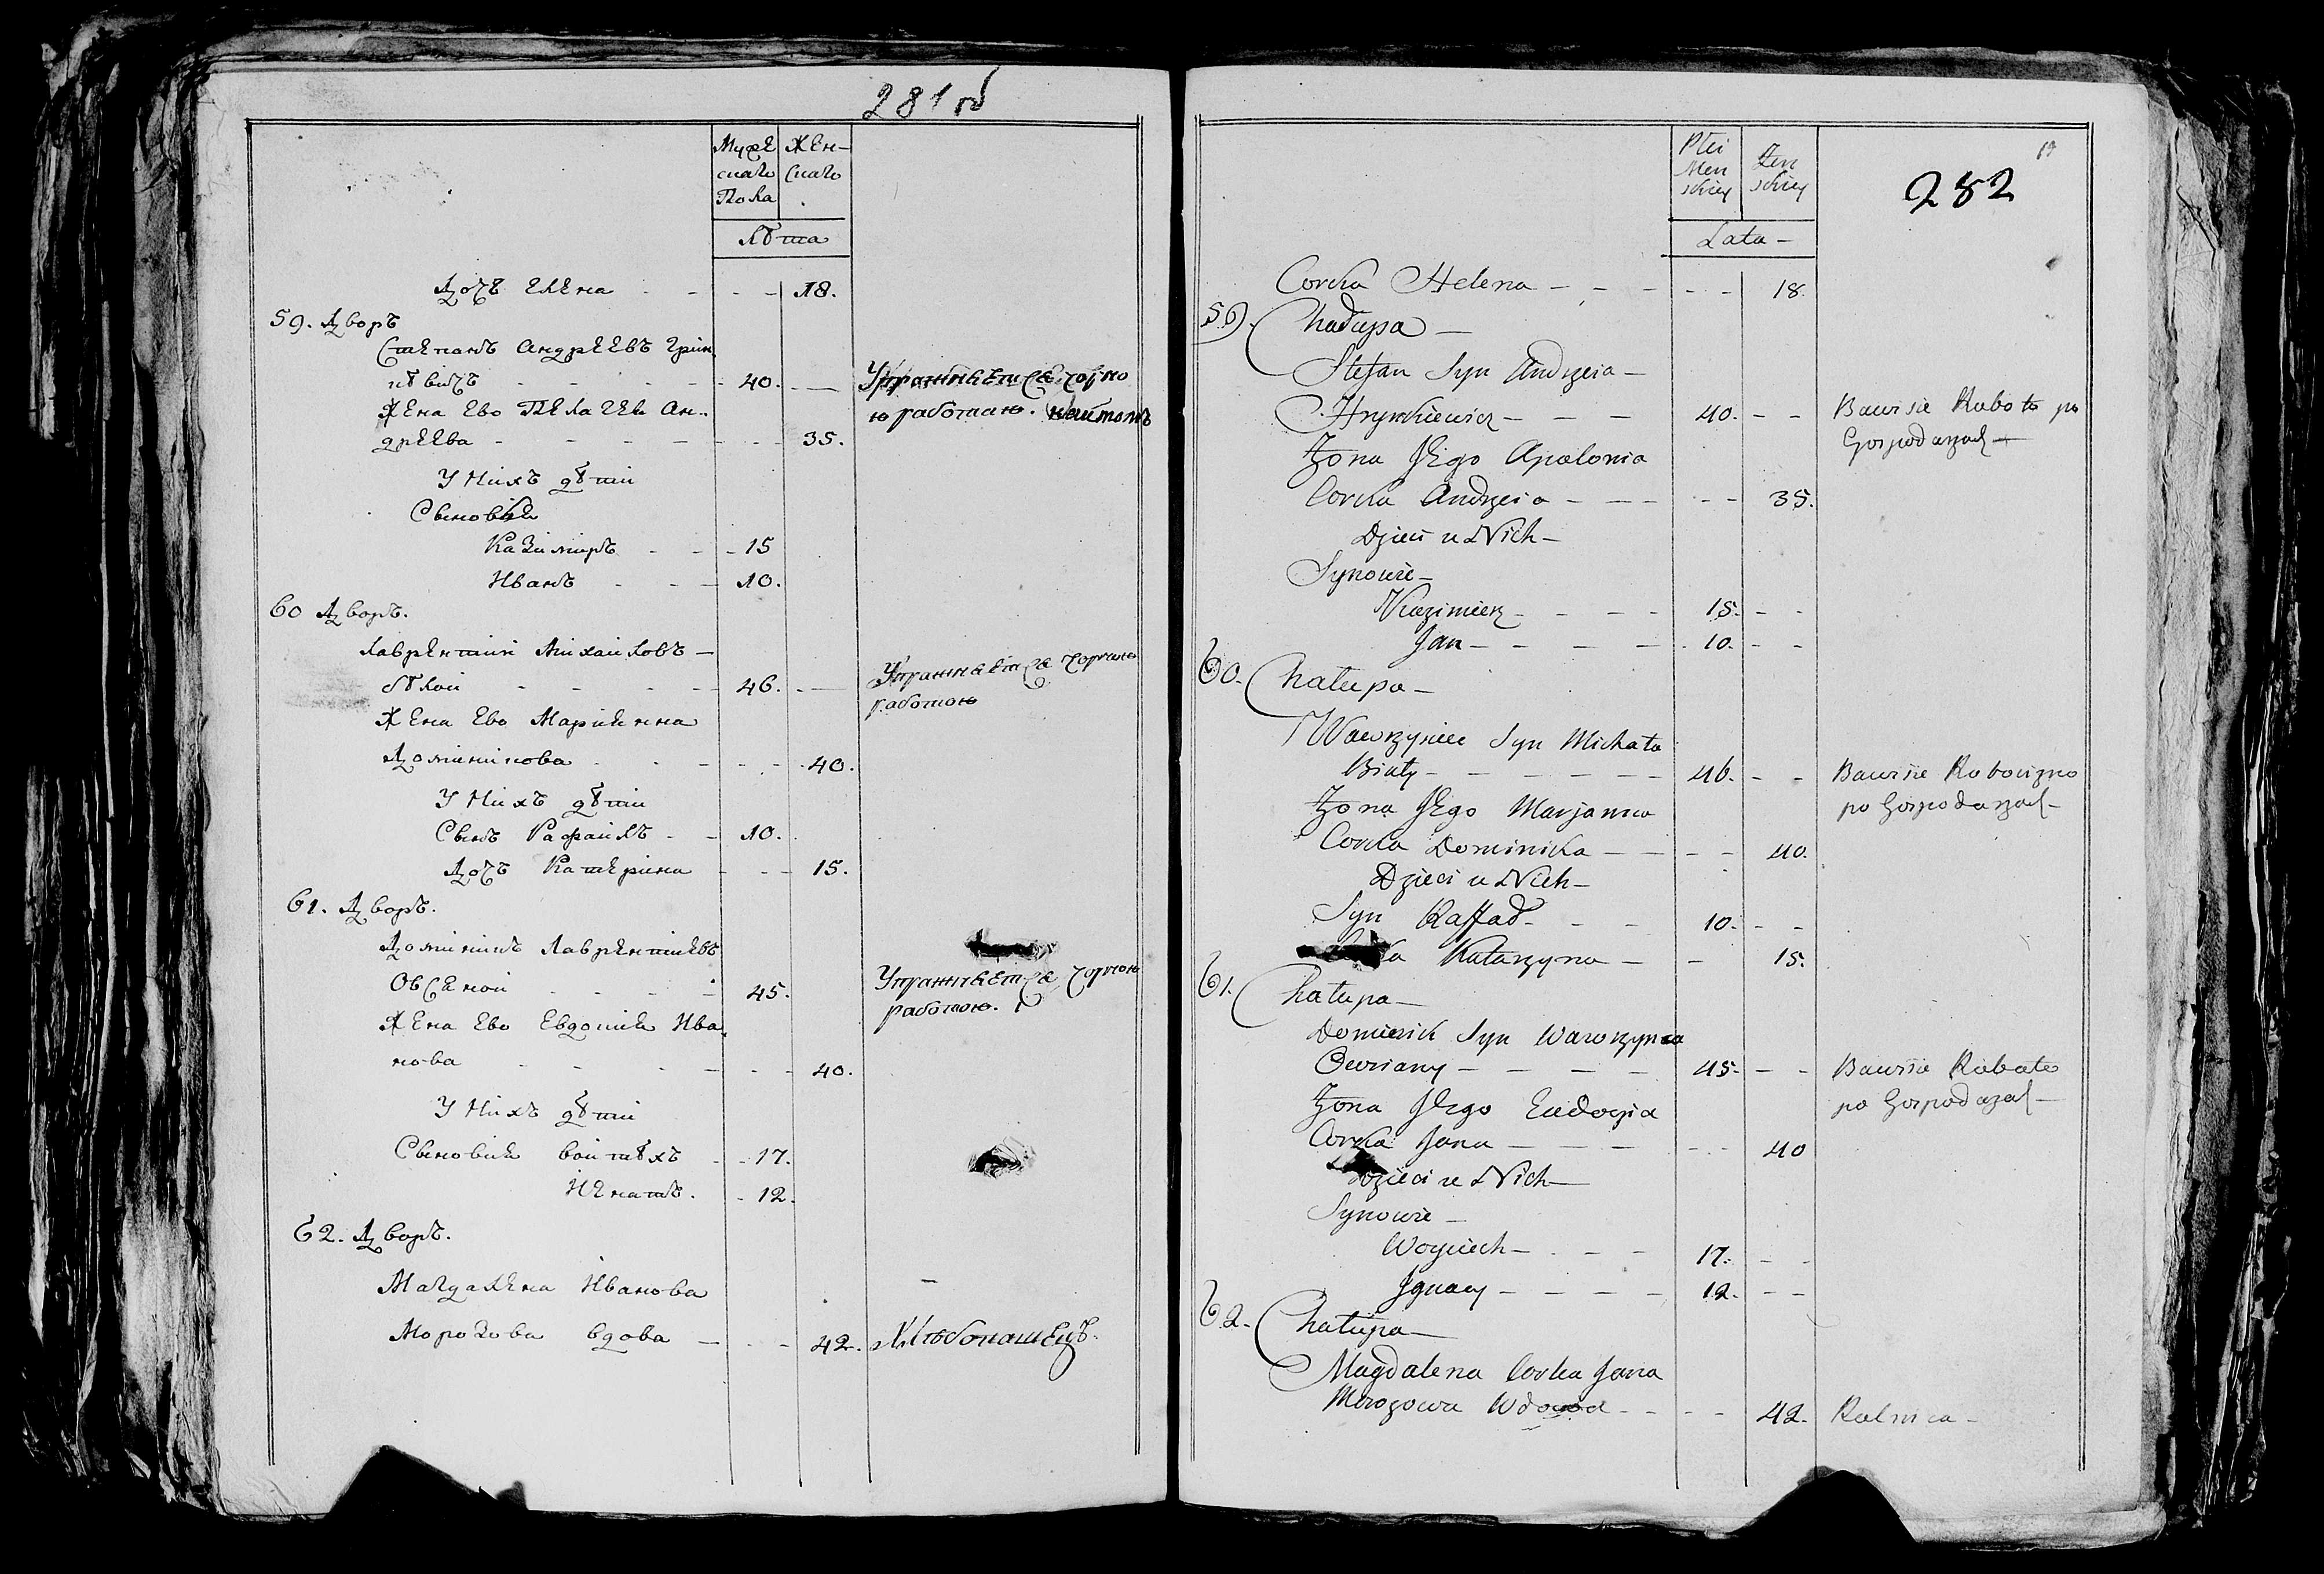 281 об
Муже Жен-
скаго скаго
Пола
лѣта
дочь Елена - - - 18.
59. дворъ
Степанъ Андреевъ Грин
кѣвичъ - - - - 40. - Упражняется чорно
жена Ево Пелагея Ан- ю работаю.
дреева - - - - 35.
У нихъ дѣти
Сыновья
Казимиръ - - 15
Иванъ - - - 10.
60 дворъ.
Лаврентий Михаиловъ -
бѣлой - - - - 46. - Упражняется чорною
работою
жена Ево Марияна
Доминикова - - - 40.
У нихъ дѣти
Сынъ Рафаилъ - - 10.
дочь Катерина - - - 15.
61. дворъ.
Доминикъ Лаврентиевъ
Овсяной - - - - 45. Упражняется чорною
работою.
жена Ево Евдокия Ива
нова - - - - 40.
У нихъ дѣти
Сыновья Войтѣхъ - - 17.
Игнатъ. - 12.
62. дворъ.
Магдалена Иванова
Морозова вдова - - - 42. Хлѣбопашецъ.
Płci Żen
Męn skiey
skiey
Lata -
282
Corka Helena - - - - - 18.
59. Chałupa -
Stefan Syn Andrzeia -
Hrynkiewicz - - - 40. - - Bawi sie Robotą po
Gospodarzach -
Żona Jego Apolonia
Corka Andrzeia - - - - - 35.
Dzieci u Nich -
Synowie -
Kazimierz - - - - 15. - -
Jan - - - - 10. - -
60. Chałupa -
Wawrzyniec Syn Michała
Biały - - - - - - 46. - - Bawi sie Robocizno
po Gospodarzach -
Żona Jego Marjanna
Corka Dominika - - - - 40.
Dzieci u Nich -
Syn Raffał - - - 10. - -
Katarzyna - - 15.
61. Chałupa -
Dominik Syn Wawrzynca
Owsiany - - - - 45. - - Bawi sie Robote
po Gospodarzach -
Żona Jego Eudocyia
Corka Jana - - - - - 40
Dzieci u Nich -
Synowie -
Woyciech - - - - 17. - -
Jgnacy - - - - 12. - -
62. Chałupa -
Magdalena Corka Jana
Morozowa Wdowa - - - - 42. Rolnica -